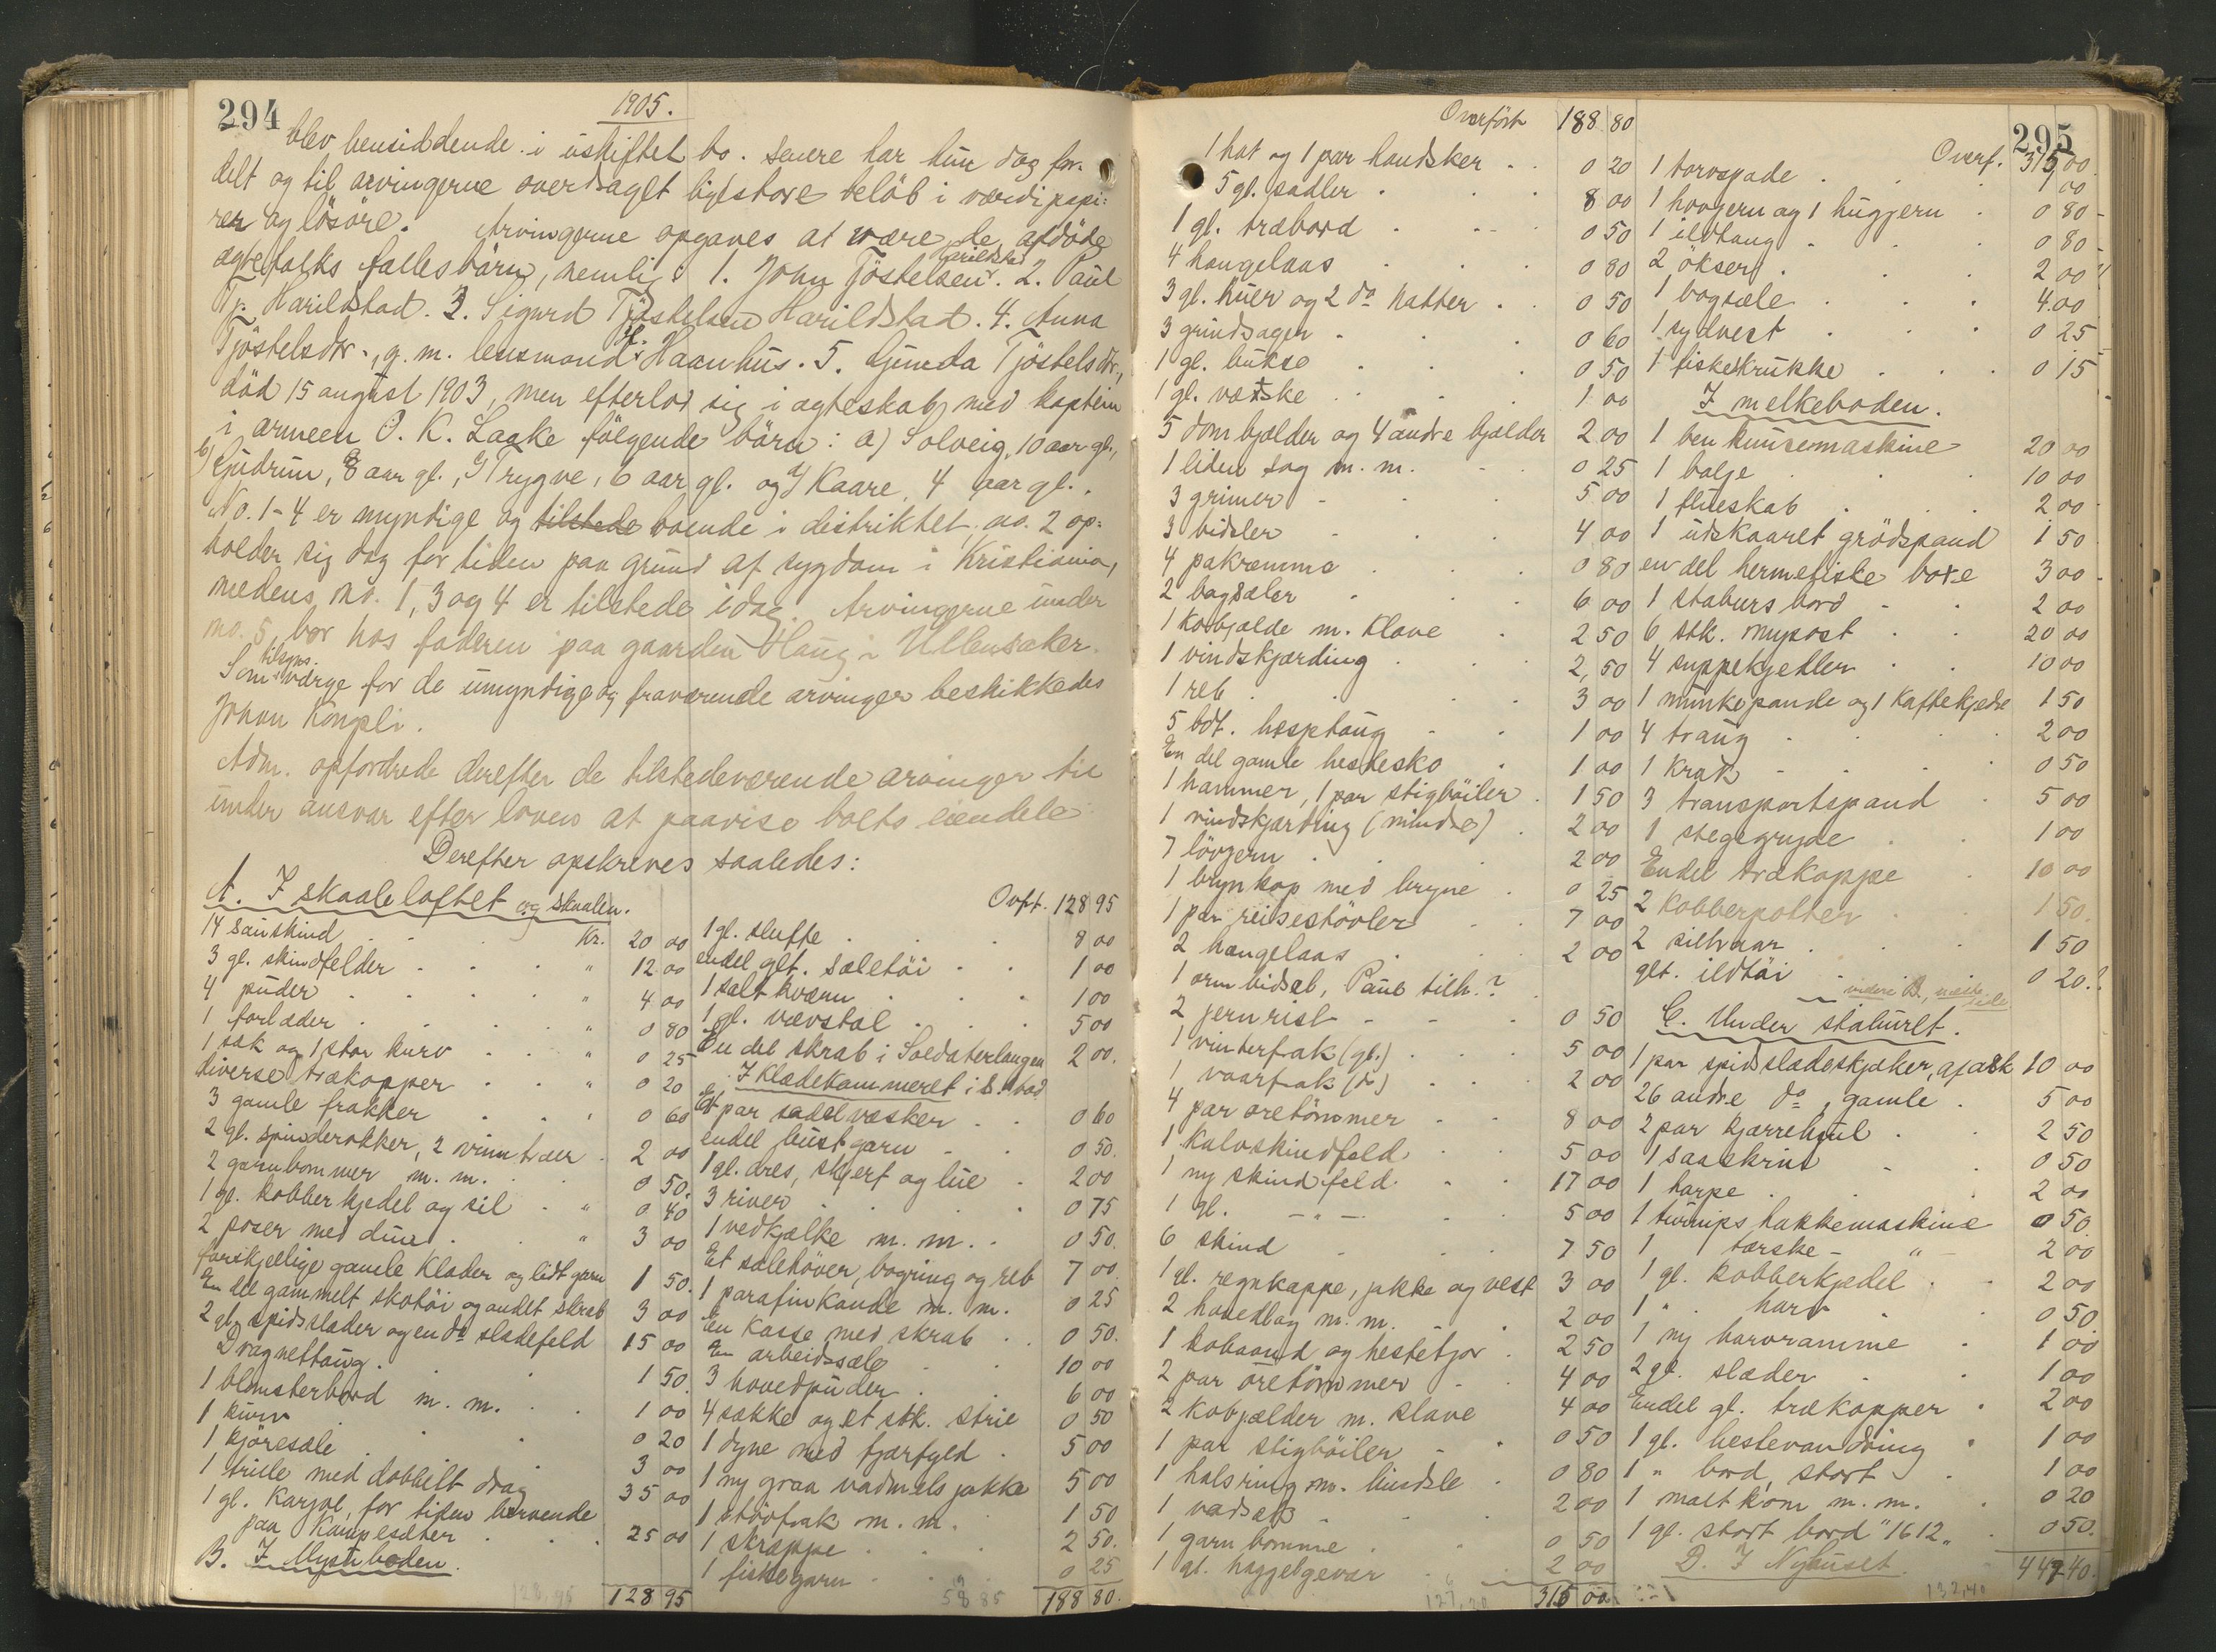 294
1905.
blev hensiddende i uskiftet bo. Senere har hun dog for-
delt og til arvingerne overdraget ligestore beløb i værdipapi-
rer og løsøre. Arvingerne opgaves at være de afdøde
ægtefolks fællesbørn, nemlig: 1. John Tjøstelsen Harildstad. 2. Paul
Tj. Harildstad. 3. Sigurd Tjøstelsen Harildstad. 4. Anna
Tjøstelsdtr., g. m. lensmand Haanhus. 5. Gunda Tjøstelsdtr.,
død 15 august 1903, men efterlod sig i ægteskab med kaptein
i armeen O. K. Laake følgende børn: a) Solveig, 10 aar gl.,
b) Gudrun, 8 aar gl., c) Trygve, 6 aar gl. og d) Kaare, 4 aar gl.
No. 1-4 er myndige og tilstede boende i distriktet, no. 2 op-
holder sig dog for tiden paa grund af sygdom i Kristiania,
medens no. 1, 3 og 4 er tilstede idag. Arvingerne under
no. 5 bor hos faderen paa gaarden Haug i Ullensaker.
Som tilsyns-værge for de umyndige og fraværende arvinger beskikkedes
Johan Kongsli.
Adm. opfordrede derefter de tilstedeværende arvinger til
under ansvar efter loven at paavise boets eiendele
Derefter opskreves saaledes:
A. I skaaleloftet og skaalen.
14 sauskind Kr. 20 00
3 gl. skindfelder " 12 00
4 puder " 4 00
1 forlæder " 0 80
1 sæk og 1 stor kurv " 0 25
diverse trækopper " 0 20
3 gamle frakker " 0 60
2 gl. spinderokker, 2 vinntræer 2 00
2 garnbommer m. m. 0 50.
1 gl. kobberkjedel og sil " 0 40
2 poser med dun " 3 00
forskjellige gamle klæder og lidt garn 1 50.
En del gammelt skotøi og andet skrab 3 00
2 gl. spidsslæder og en do slædefeld 15 00
Dragnettaug. 1 50.
1 blomsterbord m. m. 1 00
1 kurv 0 20
1 kjøresæle 3 00
1 trille med dobbelt drag 35 00
1 gl. karjol, for tiden beroende
paa Kampesæter 25 00
B. I Mystuboden.
128 95
Ovft. 128 95
1 gl. sluffe 8 00
endel glt. sæletøi 1 00
1 saltkværn 1 00
1 gl. vævstol 5 00
En del skrab i Soldaterlaugen 2 00.
I Klædekammeret i S. bod
Et par sadelvæsker 0 60
endel bustgarn 0 50.
1 gl. dres, skjerf og lue 2 00
3 river 0 75
1 vedkjælke m. m. 0 50.
Et sæletøver, bogring og reb 7 00
1 parafinkande m. m. 0 25
En kasse med skrab 0 50.
En arbeidssæle 10 00
3 hovedpuder 6 00
4 sække og et stk. strie 0 50
1 dyne med fjærfyld 5 00
1 ny graa vadmelsjakke 5 00
1 støvfrak m. m. 1 50
1 skræppe 2 50.
1 fiskegarn 0 25
188 80.
295
Overført 188 80
1 hat og 1 par handsker 0 20
5 gl. sadler 8 00
1 gl. træbord 0 50
4 hængelaas 0 80
3 gl. huer og 2 do hatter 0 50
3 grindsager 0 60
1 gl. bukse 0 50
1 gl. væske 1 00
5 dombjælder og 4 andre bjælder 2 00
1 liden sag m. m. 0 25
3 grimer 5 00
3 bidsler 4 00
4 pakræmme 0 80
2 bagsæler 6 00
1 kobjælde m. klave 2 50
1 vindskjærding 2,50
1 reb 3 00
5 bdt. hesptaug 1 00
En del gamle hestesko 1 00
1 hammer, 1 par stigbøiler 1 50
1 vindskjærding (mindre) 2 00
7 løvgern 2 00
1 brynkop med bryne 0 25
1 par reisestøvler 7 00
2 hængelaas 2 00
1 orm bidsel, Paul tilh.?
2 jernrist 0 50
1 vinterfrak (gl.) 5 00
1 vaarfrak (do) 2 00
4 par øretømmer 8 00
1 kalvskindfeld 5 00
1 ny skindfeld 17 00
1 gl. —"— 5 00
6 skind 7 50
1 gl. regnkappe, jakke og vest 3 00
2 hovedlag m. m. 2 00
1 kobaand og hestetjor 2 50
2 par øretømmer 4 00
2 kobjælder m. klave 4 00
1 par stigbøiler 0 50
1 halsring m. bindsle 0 80
1 vadsæk 2 00
1 garnbomme 0 50
1 gl. haggelgevær 2 00
315 00
Overf. 315,00
1 torvspade 1 00
1 hovjern og 1 hugjern 0 80
1 ildtang 0 80
2 økser 2 00
1 bogsæle 4 00
1 sydvest 0 25
1 fiskekrukke 0 15
I melkeboden.
1 benknusemaskine 20 00
1 balje 10 00
1 flueskab 2 00
1 udskaaret grødspand 1 50
en del hermetiske boxe 3 00
1 stabursbord 2 00
6 stk. mysost 20 00
4 suppekjedler 10 00
1 munkepande og 1 kaffekjedel 1 50
4 traug 2 00
1 krak 0 50
3 transportspand 5 00
1 stegegryde 1 00
Endel trækoppe 10 00
2 kobberpotter 1 50.
2 silhaar 1 50
glt. ildtøi 0 20.
videre B., næste side
C. Under staburet.
1 par spidslædeskjæker, af ask 10 00
26 andre do, gamle 5 00
2 par kjærrehjul 2 50
1 saaskrin 0 50
1 harpe 2 00
1 turnips hakkemaskine 0 50.
1 tærske- " 2 00
1 gl. kobberkjedel 2 00
1 " harv 0 50
1 ny harvramme 1 00
2 gl. slæder 1 00
Endel gl. trækopper 2 00
1 gl. hestevandring 1 00
1 " bord, stort 1 00
1 maltkorn m. m. 0 20
1 gl. stort bord "1612" 0 50.
D. I Nyhuset. 447 40.
132,40